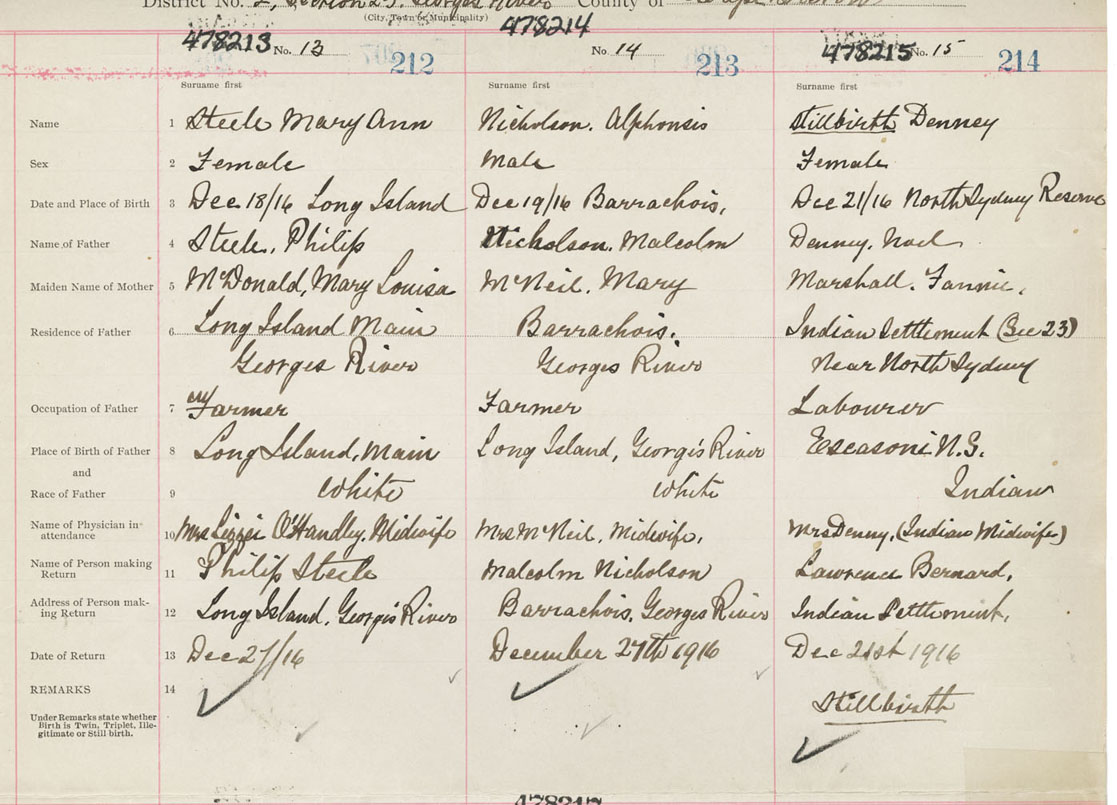 District No. 2, Section 23. Georges River County of Cape Breton
(City, Town or Municipality)
478213 No. 13 212
478214 No. 14 213
478215 No. 15 214
Surname first Surname first Surname first
Name 1 Steele Mary Ann Nicholson. Alphonsis Stillbirth Denney
Sex 2 Female Male Female
Date and Place of Birth 3 Dec 18/16 Long Island Dec 19/16 Barrachois, Dec 21/16 North Sydney Reserve
Name of Father 4 Steele, Philip Nicholson. Malcolm Denney. Noel
Maiden Name of Mother 5 McDonald, Mary Louisa McNeil. Mary Marshall. Fannie.
Residence of Father 6 Long Island Main Barrachois. Indian Settlement (Sec 23)
Georges River Georges River Near North Sydney
Occupation of Father 7 Farmer Farmer Labourer
Place of Birth of Father 8 Long Island, Main Long Island, George's River Escasoni N.S.
and
Race of Father 9 White White Indian
Name of Physician in attendance 10 Mrs Lizzie O'Handley. Midwife Mrs McNeil, Midwife. Mrs Denny, (Indian Midwife)
Name of Person making Return 11 Philip Steele Malcolm Nicholson Lawrence Bernard.
Address of Person making Return 12 Long Island, George's River Barrachois, Georges River Indian Settlement.
Date of Return 13 Dec 27/16 December 27th 1916 Dec 21st 1916
REMARKS 14 Stillbirth
Under Remarks state whether
Birth is Twin, Triplet, Ille-
gitimate or Still birth.